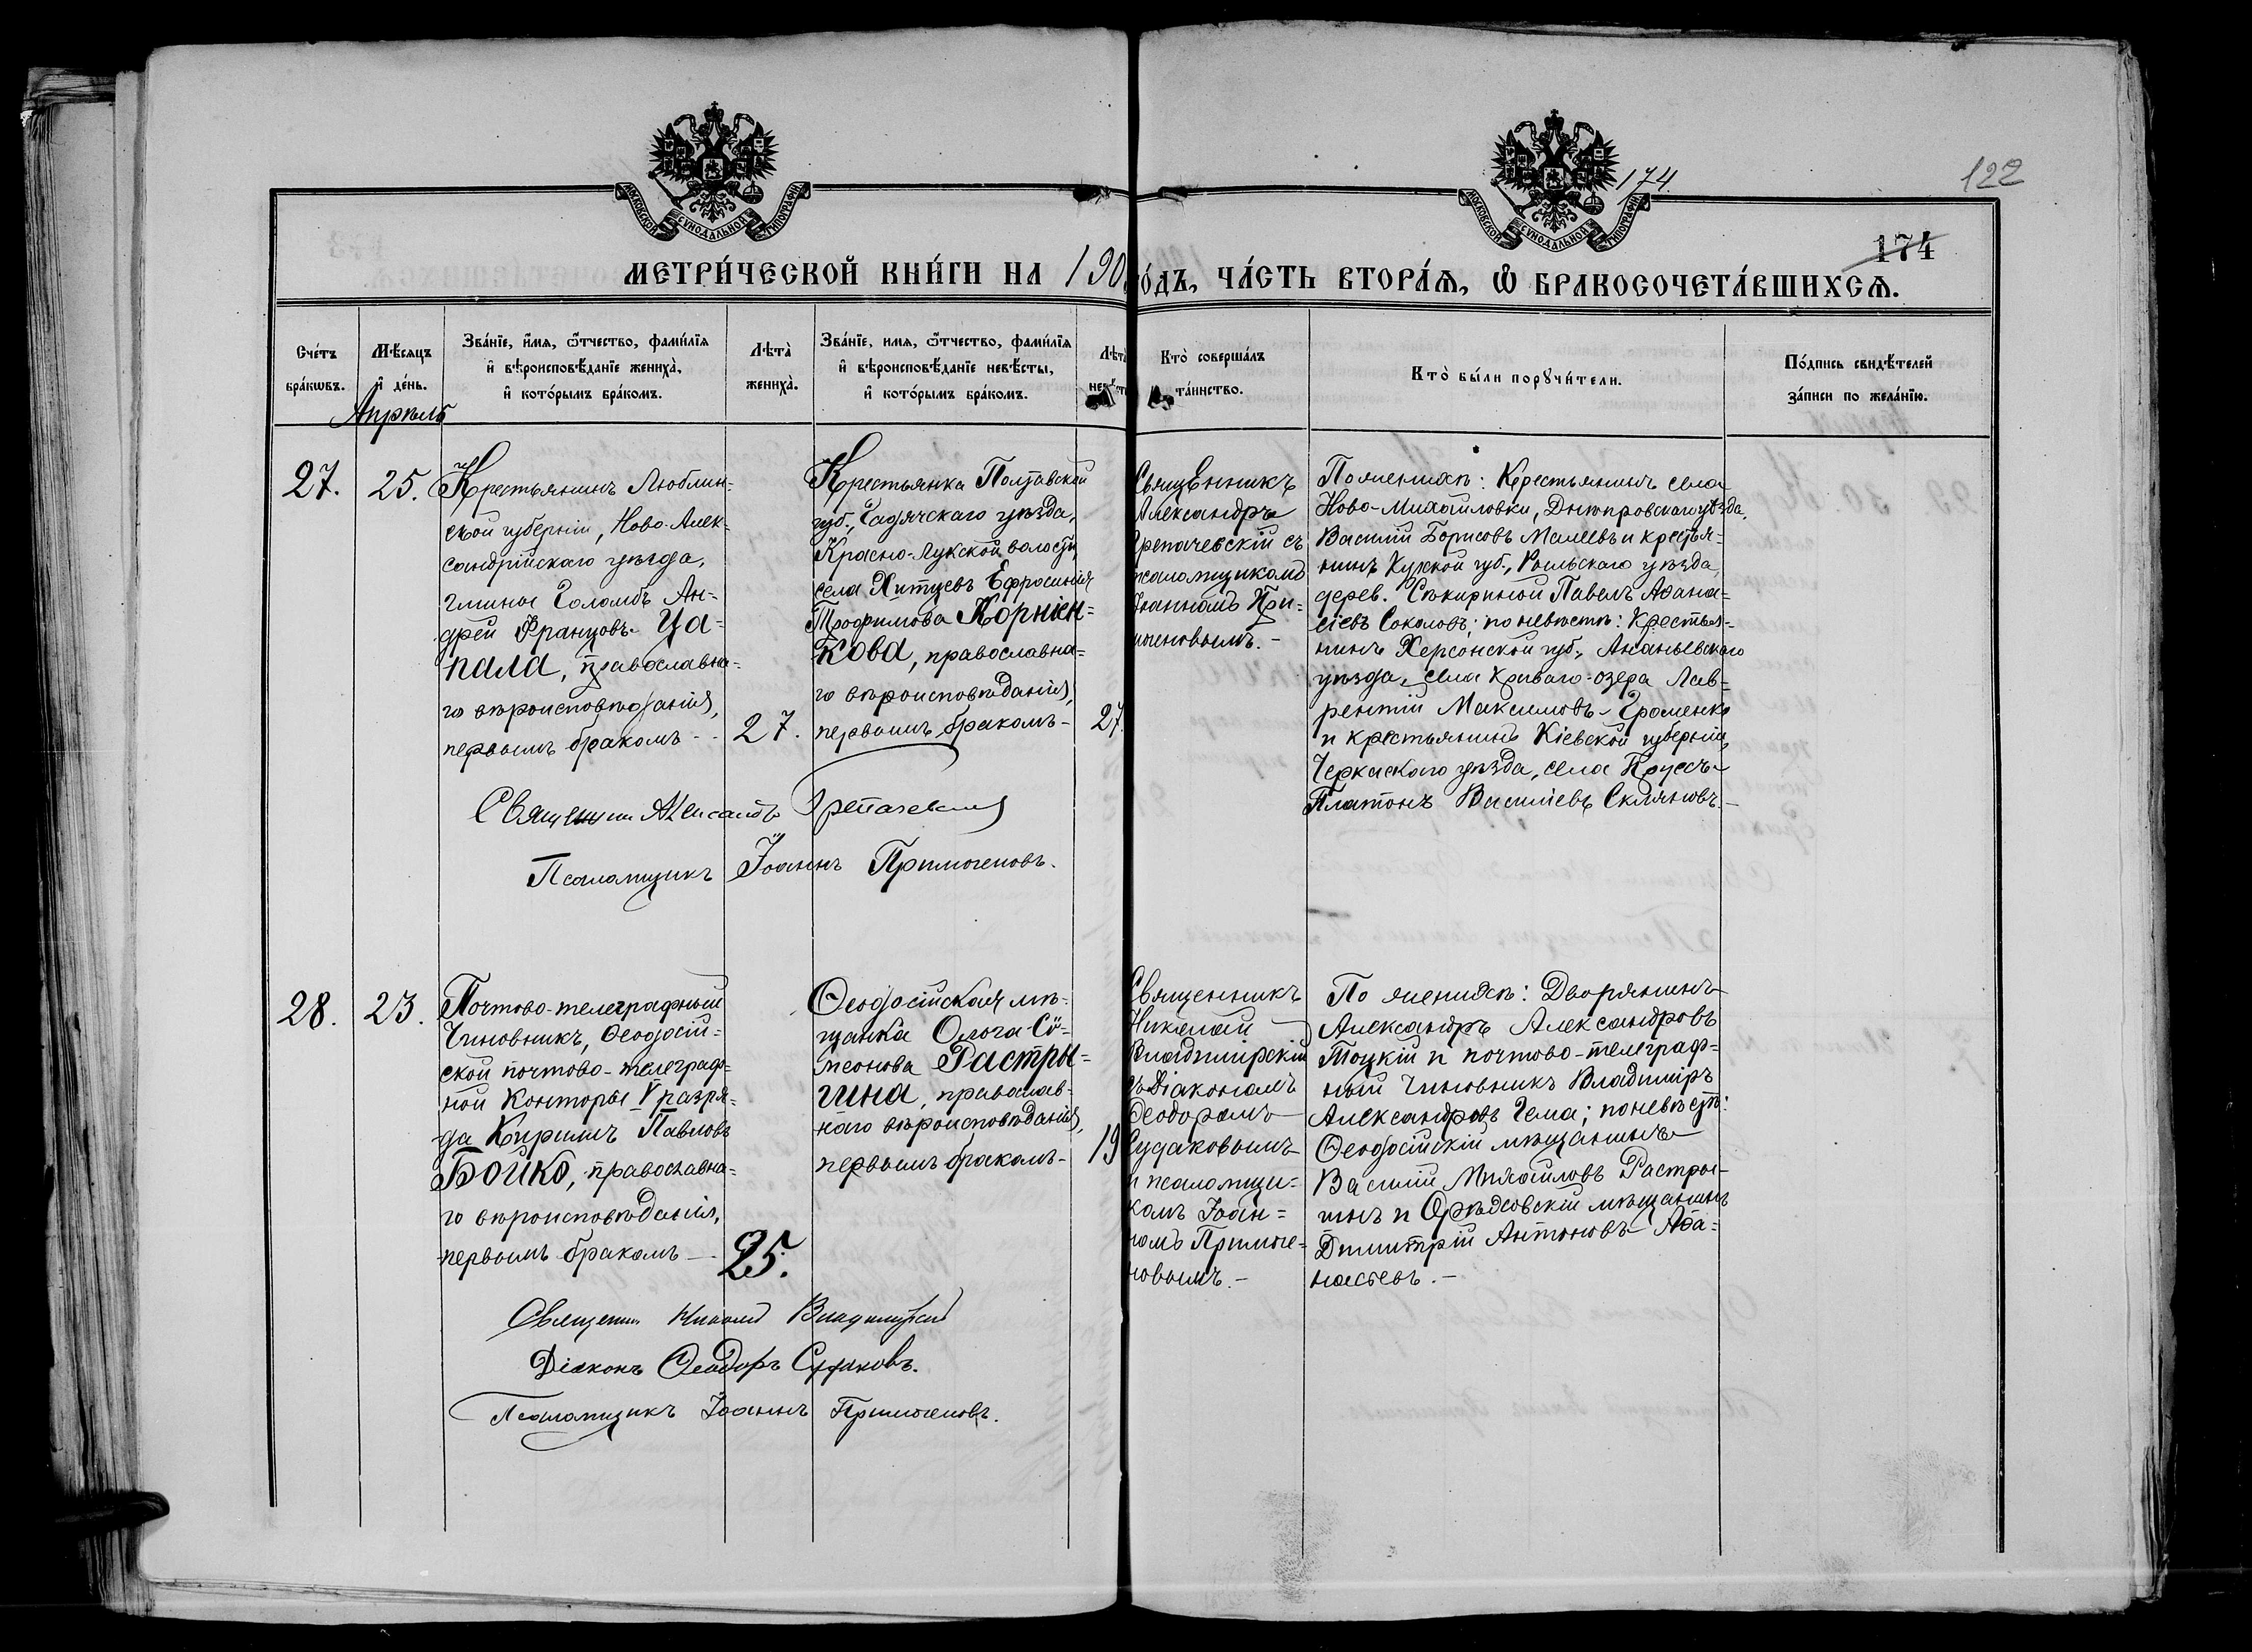 174.
122
МОСКОВСКОЙ СУНОДАЛЬНОЙ ТИПОГРАФІИ
МОСКОВСКОЙ СУНОДАЛЬНОЙ ТИПОГРАФІИ
174
МЕТРИ́ЧЕСКОЙ КНИ́ГИ НА 190
О́ДЪ, ЧА́СТЬ ВТОРА́Я, Ѡ БРАКОСОЧЕТА́ВШИХСѦ.
Сче́тъ
бра́кѡвъ.
Мѣ́сяцъ
и҆ де́нь.
Зва́нїе, и҆́мя, ѻ҆́тчество, фами́лїя
и҆ вѣроисповѣ́данїе жениха̀,
и҆ кото́рымъ бра́комъ.
Лѣта̀
жениха̀.
Зва́нїе, имя, ѻ҆́тчество, фами́лїя
и҆ вѣроисповѣ́данїе невѣ́сты,
и҆ кото́рымъ бра́комъ.
Лѣта̀
Кто̀ соверша́лъ
та́инство.
Кто̀ бы́ли порꙋчи́тели.
По́дпись свидѣ́телей
за́писи по жела́нїю.
Апрѣль
27.
25.
Крестьянинъ Люблин-
ской губерніи, Ново-Алек-
сандрійскаго уѣзда,
гмины Голомбъ Ан-
дрей Францовъ Ца-
пала, православна-
го вѣроисповѣданія,
первымъ бракомъ - -
27.
Крестьянка Полтавской
губ., Гадячскаго уѣзда,
Красно-Лукской волости,
села Хитцевъ Ефросинія
Трофимова Корніен-
кова, православна-
го вѣроисповѣданія,
первымъ бракомъ -
27.
Священникъ
Александръ
Трепачевскій съ
псаломщикомъ
Іоанномъ При-
могеновымъ. -
По женихѣ: Крестьянинъ села
Ново-Михайловки, Днѣпровскаго уѣзда,
Василій Борисовъ Малѣевъ и крестья-
нинъ Курской губ., Рыльскаго уѣзда,
дерев. Сѣкириной Павелъ Аѳана-
сіевъ Соколовъ; по невѣстѣ: Крестья-
нинъ Херсонской губ., Ананьевскаго
уѣзда, села Криваго-озера Лав-
рентій Максимовъ Громенко
и крестьянинъ Кіевской губерніи,
Черкаскаго уѣзда, села Прусъ
Платонъ Василіевъ Скляновъ. -
Священник Александръ Трепачевскій
Псаломщикъ Іоаннъ Примогеновъ.
28.
23.
Почтово-телеграфный
Чиновникъ, Ѳеодосій-
ской почтово-телеграф-
ной Конторы V разря-
да Кириллъ Павловъ
Бойко, православна-
го вѣроисповѣданія,
первымъ бракомъ -
25.
Ѳеодосійская мѣ-
щанка Ольга Си-
меонова Растры-
гина, православ-
наго вѣроисповѣданія,
первымъ бракомъ -
19
Священникъ
Николай
Владимірскій
съ Діакономъ
Ѳеодоромъ
Судаковымъ
и псаломщи-
комъ Іоан-
номъ Примоге-
новымъ. -
По женихѣ: Дворянинъ
Александръ Александровъ
Тоцкій и почтово-телеграф-
ный Чиновникъ Владиміръ
Александровъ Гема; по невѣстѣ:
Ѳеодосійскій мѣщанинъ
Василій Михайловъ Растры-
гинъ и Орѣховскій мѣщанинъ
Димитрій Антоновъ Аѳа-
насьевъ. -
Священник Николай Владимірскій
Діаконъ Ѳеодоръ Судаковъ.
Псаломщикъ Іоаннъ Примогеновъ.